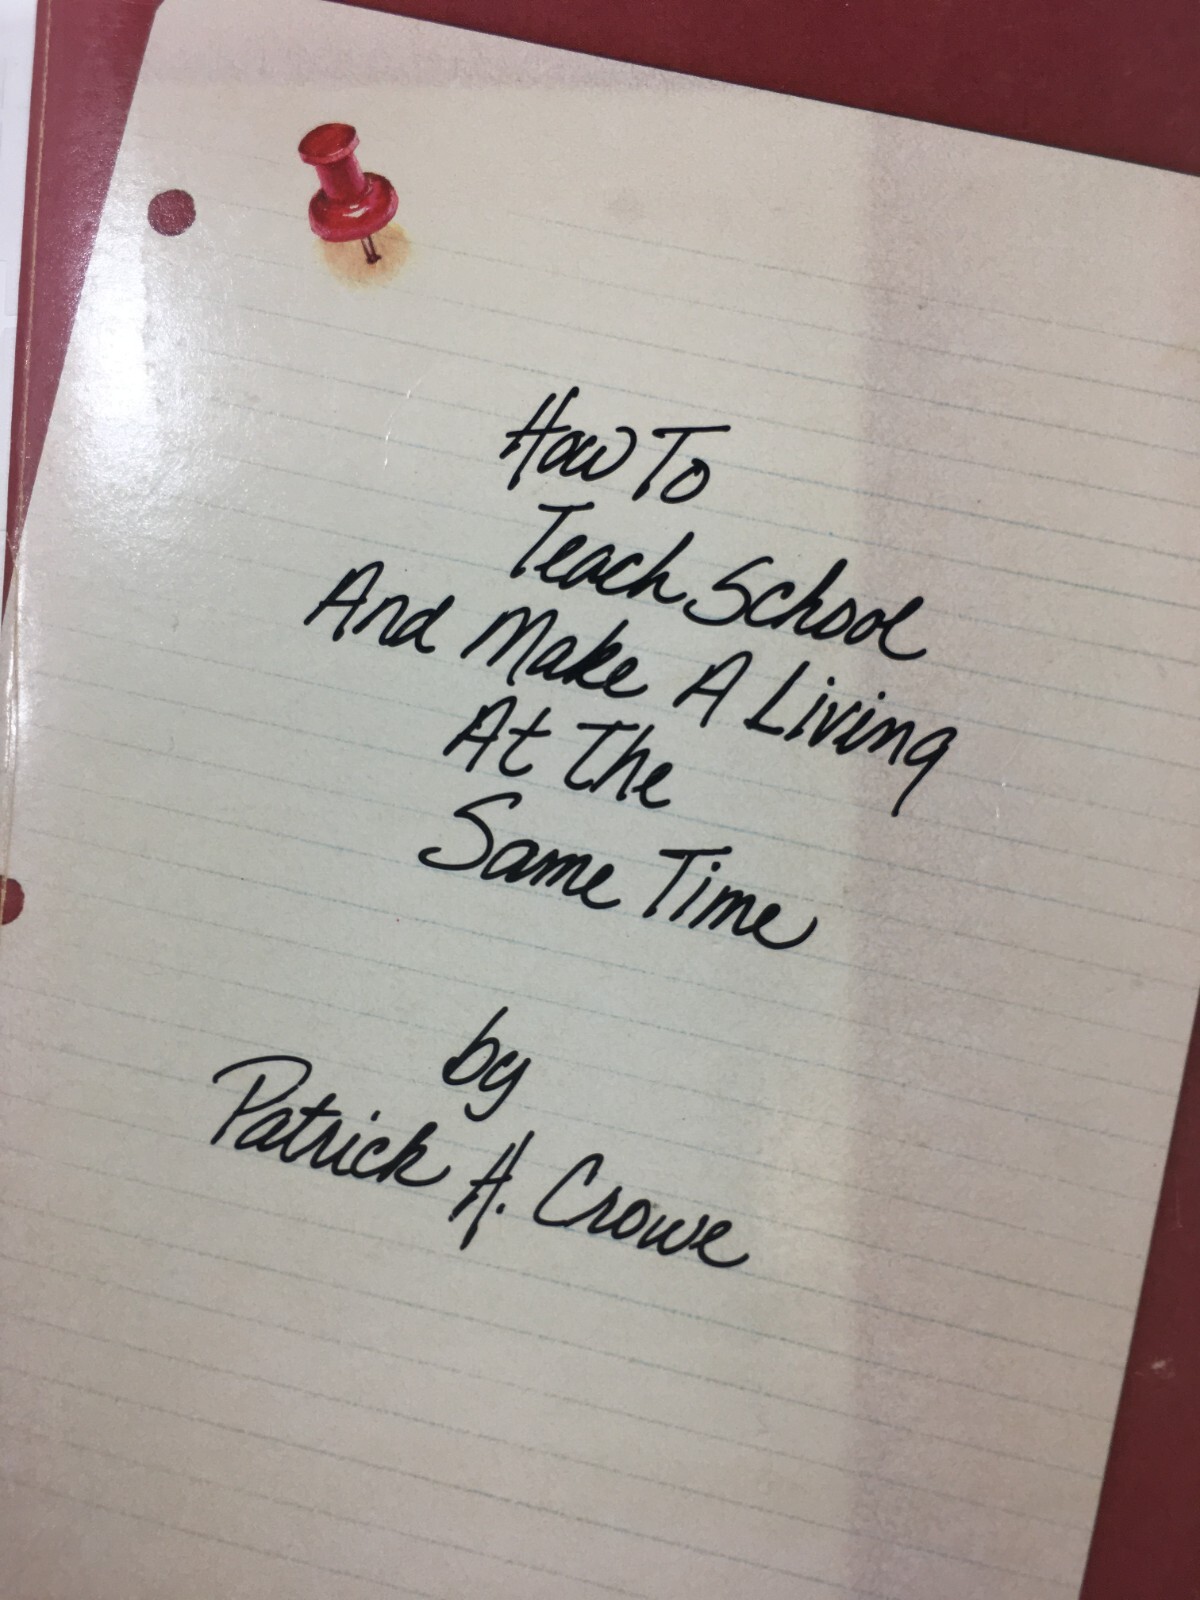 How To
Teach School
And Make A Living
At The
Same Time
by
Patrick A. Crowe